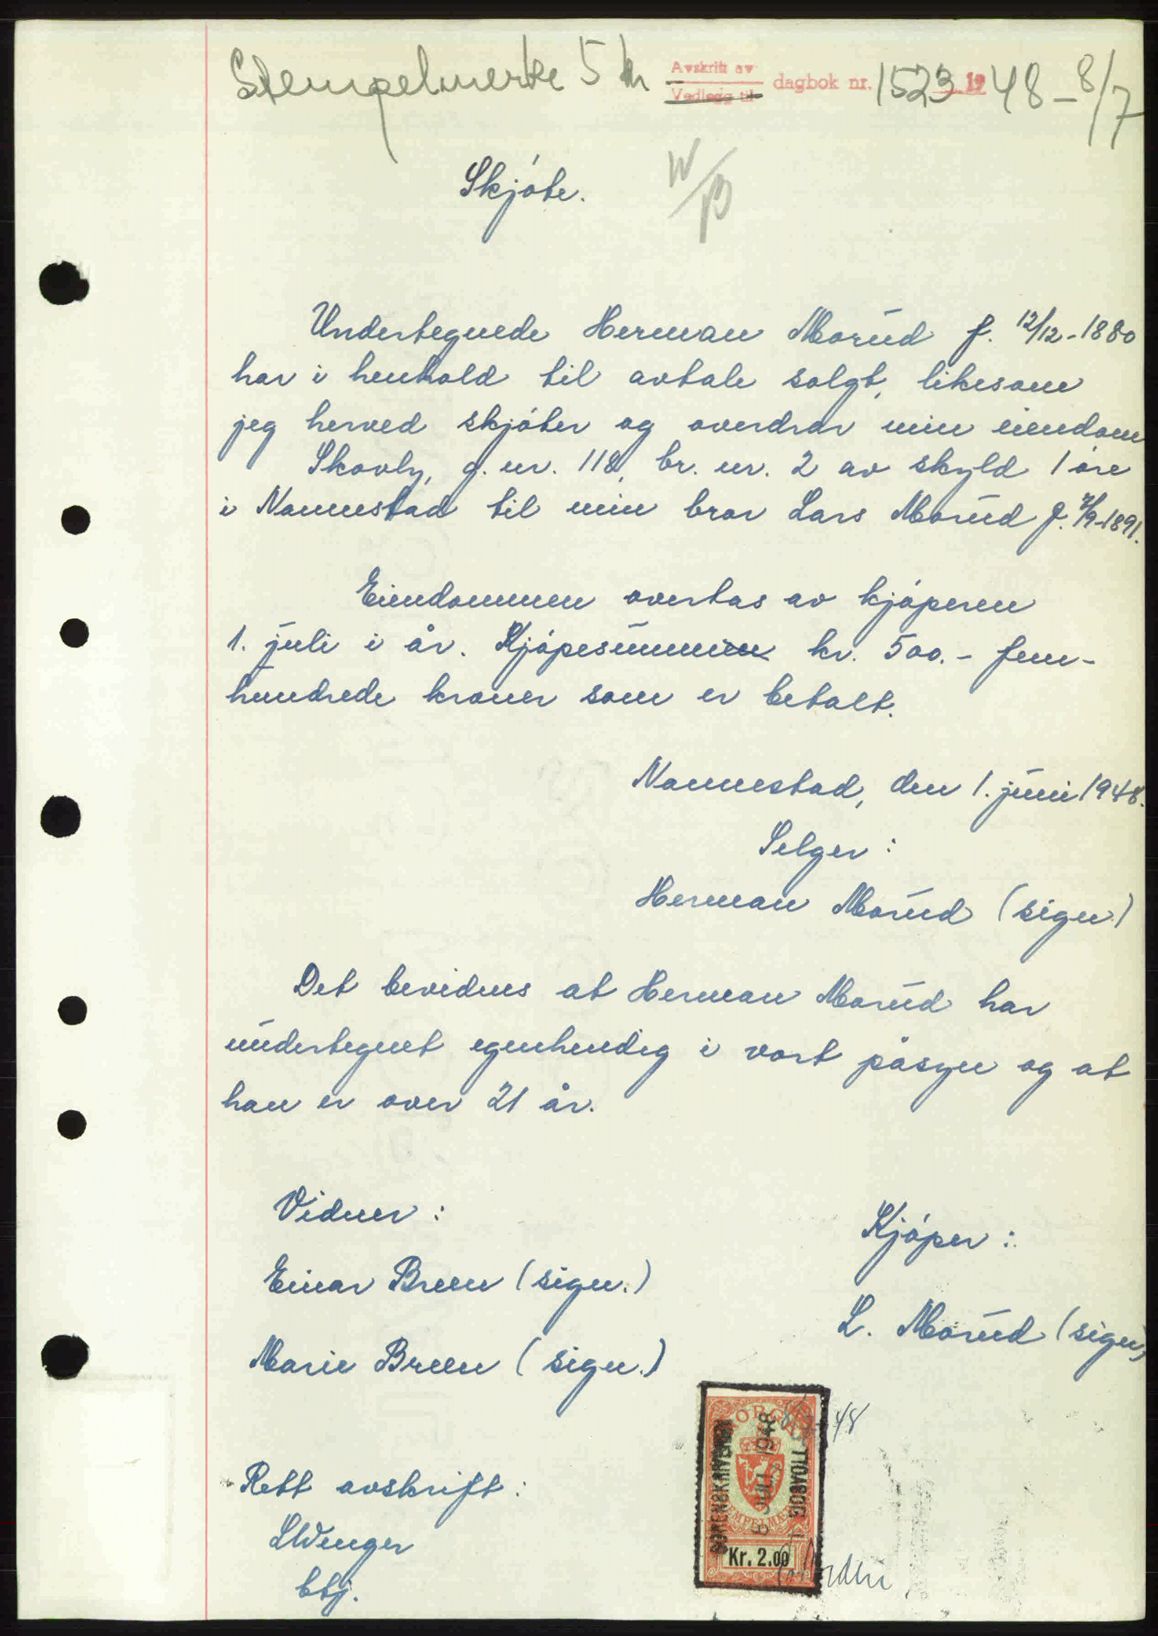 Stempelmerke 5 kr
Avskrift av
Vedlegg til
dagbok nr. 1523 1948 - 8/7
Skjøte.
Undertegnede Herman Morud f. 12/12-1880
har i henhold til avtale solgt, likesom
jeg herved skjøter og overdrar min eiendom
Skovly, g. nr. 118, br. nr. 2 av skyld 1 øre
i Nannestad til min bror Lars Morud f. /9-1891.
Eiendommen overtas av kjøperen
1. juli i år. Kjøpesummen kr. 500.- fem-
hundrede kroner som er betalt.
Nannestad, den 1. juni 1948.
Selger:
Herman Morud (sign.)
Det bevidnes at Herman Morud har
undertegnet egenhendig i vort påsyn og at
han er over 21 år.
Vidner:
Einar Breen (sign.)
Marie Breen (sign.)
Kjøper:
L. Morud (sign)
NORGE
48
SORENSKRIVEREN
8 JULI 1948
I EIDSVOLL
STEMPELMERKE
Kr. 2.00
Rett avskrift:
btj.